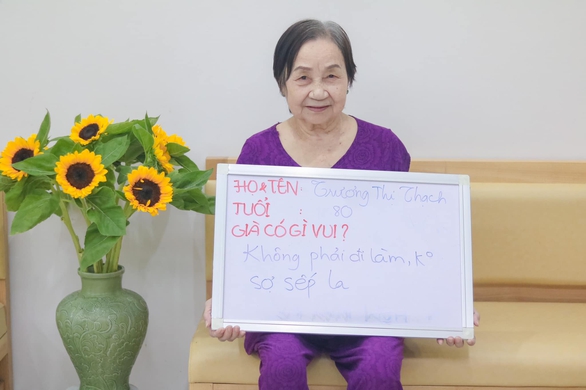 HỌ & TÊN: Trương Thị Thạch
TUỔI : 80
GIÀ CÓ GÌ VUI?
Không phải đi làm, k°
sợ sếp la